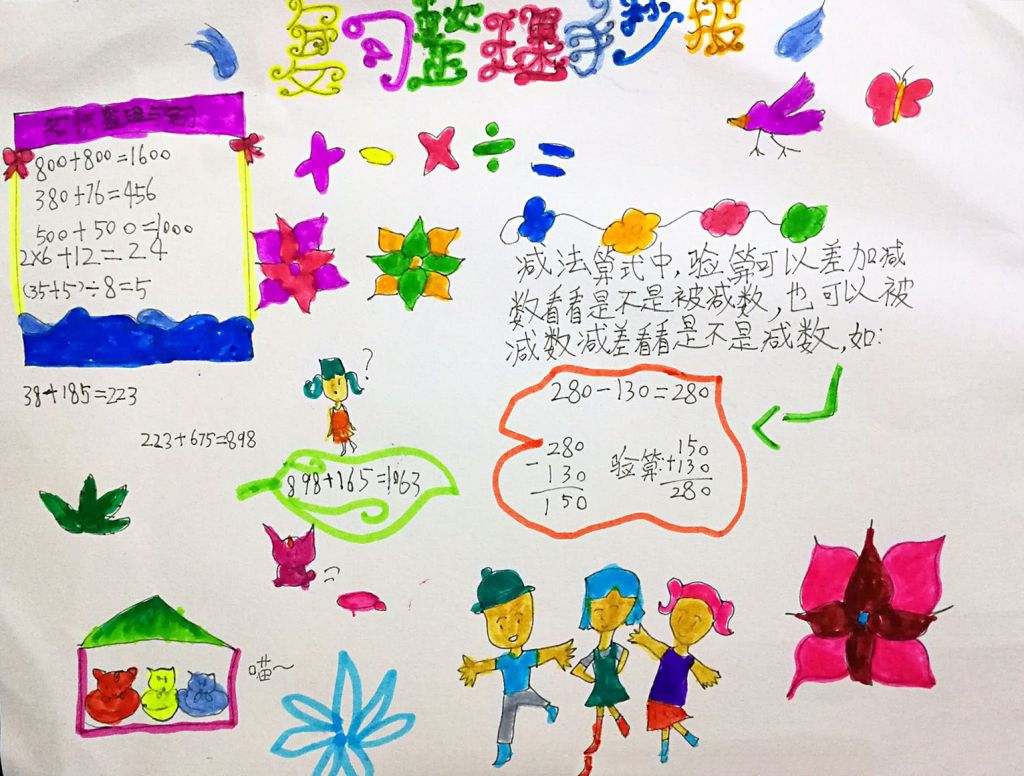 复习整理手抄报
知识整理与
800+800=1600
380+76=456
500+500=1000
2×6+12=24
(35+5)÷8=5
38+185=223
223+675=898
+ - × ÷ =
?
898+165=1063
减法算式中,验算可以差加减
数看看是不是被减数,也可以被
减数减差看看是不是减数,如:
280-130=280
280
-130
150
验算:
150
+130
280
喵~